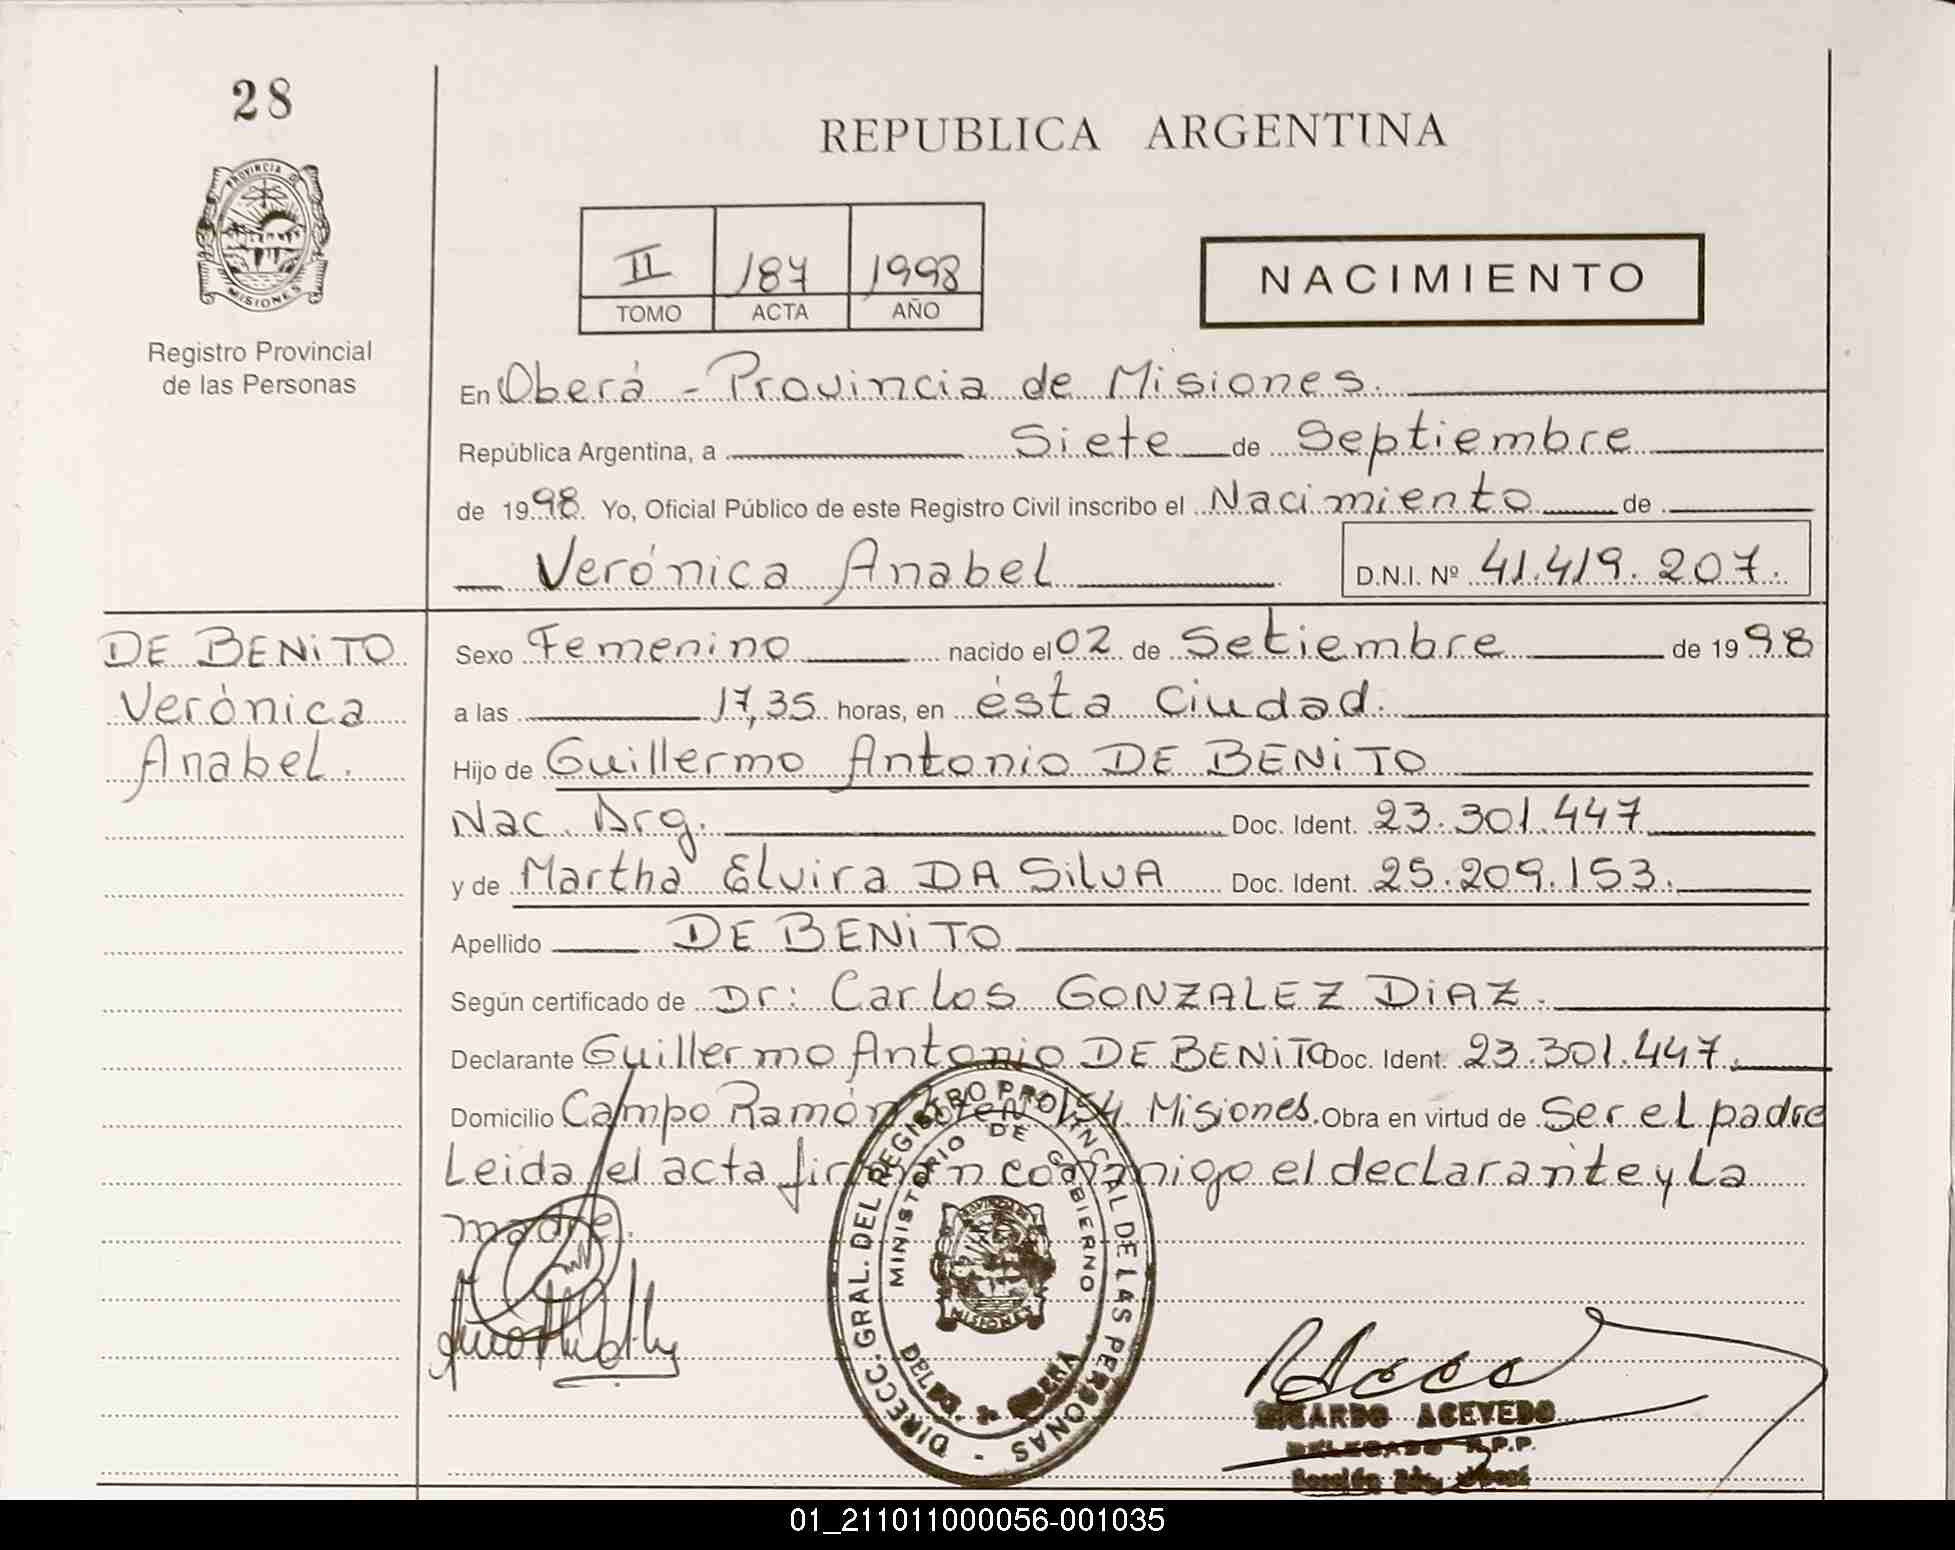 28
PROVINCIA DE
MISIONES
Registro Provincial
de las Personas
REPUBLICA ARGENTINA
II 187 1998
TOMO ACTA AÑO
NACIMIENTO
En Oberá - Provincia de Misiones.
República Argentina, a Siete de Septiembre
de 1998. Yo, Oficial Público de este Registro Civil inscribo el Nacimiento de
Verónica Anabel D.N.I. Nº 41.419.207.
DE BENITO
Verónica
Anabel.
Sexo Femenino nacido el 02 de Setiembre de 1998
a las 17,35 horas, en ésta Ciudad.
Hijo de Guillermo Antonio DE BENITO
Nac. Arg. Doc. Ident. 23.301.447
y de Martha Elvira DA SILVA Doc. Ident. 25.209.153.
Apellido DE BENITO
Según certificado de Dr: Carlos GONZALEZ DIAZ.
Declarante Guillermo Antonio DE BENITO Doc. Ident. 23.301.447.
Domicilio Campo Ramón Misiones. Obra en virtud de Ser el padre
Leida el acta firman conmigo el declarante y La
madre.
DIRECC. GRAL. DEL REGISTRO PROVINCIAL DE LAS PERSONAS -
MINISTERIO DE GOBIERNO
MISIONES
RICARDO ACEVEDO
DELEGADO R.P.P.
01_211011000056-001035